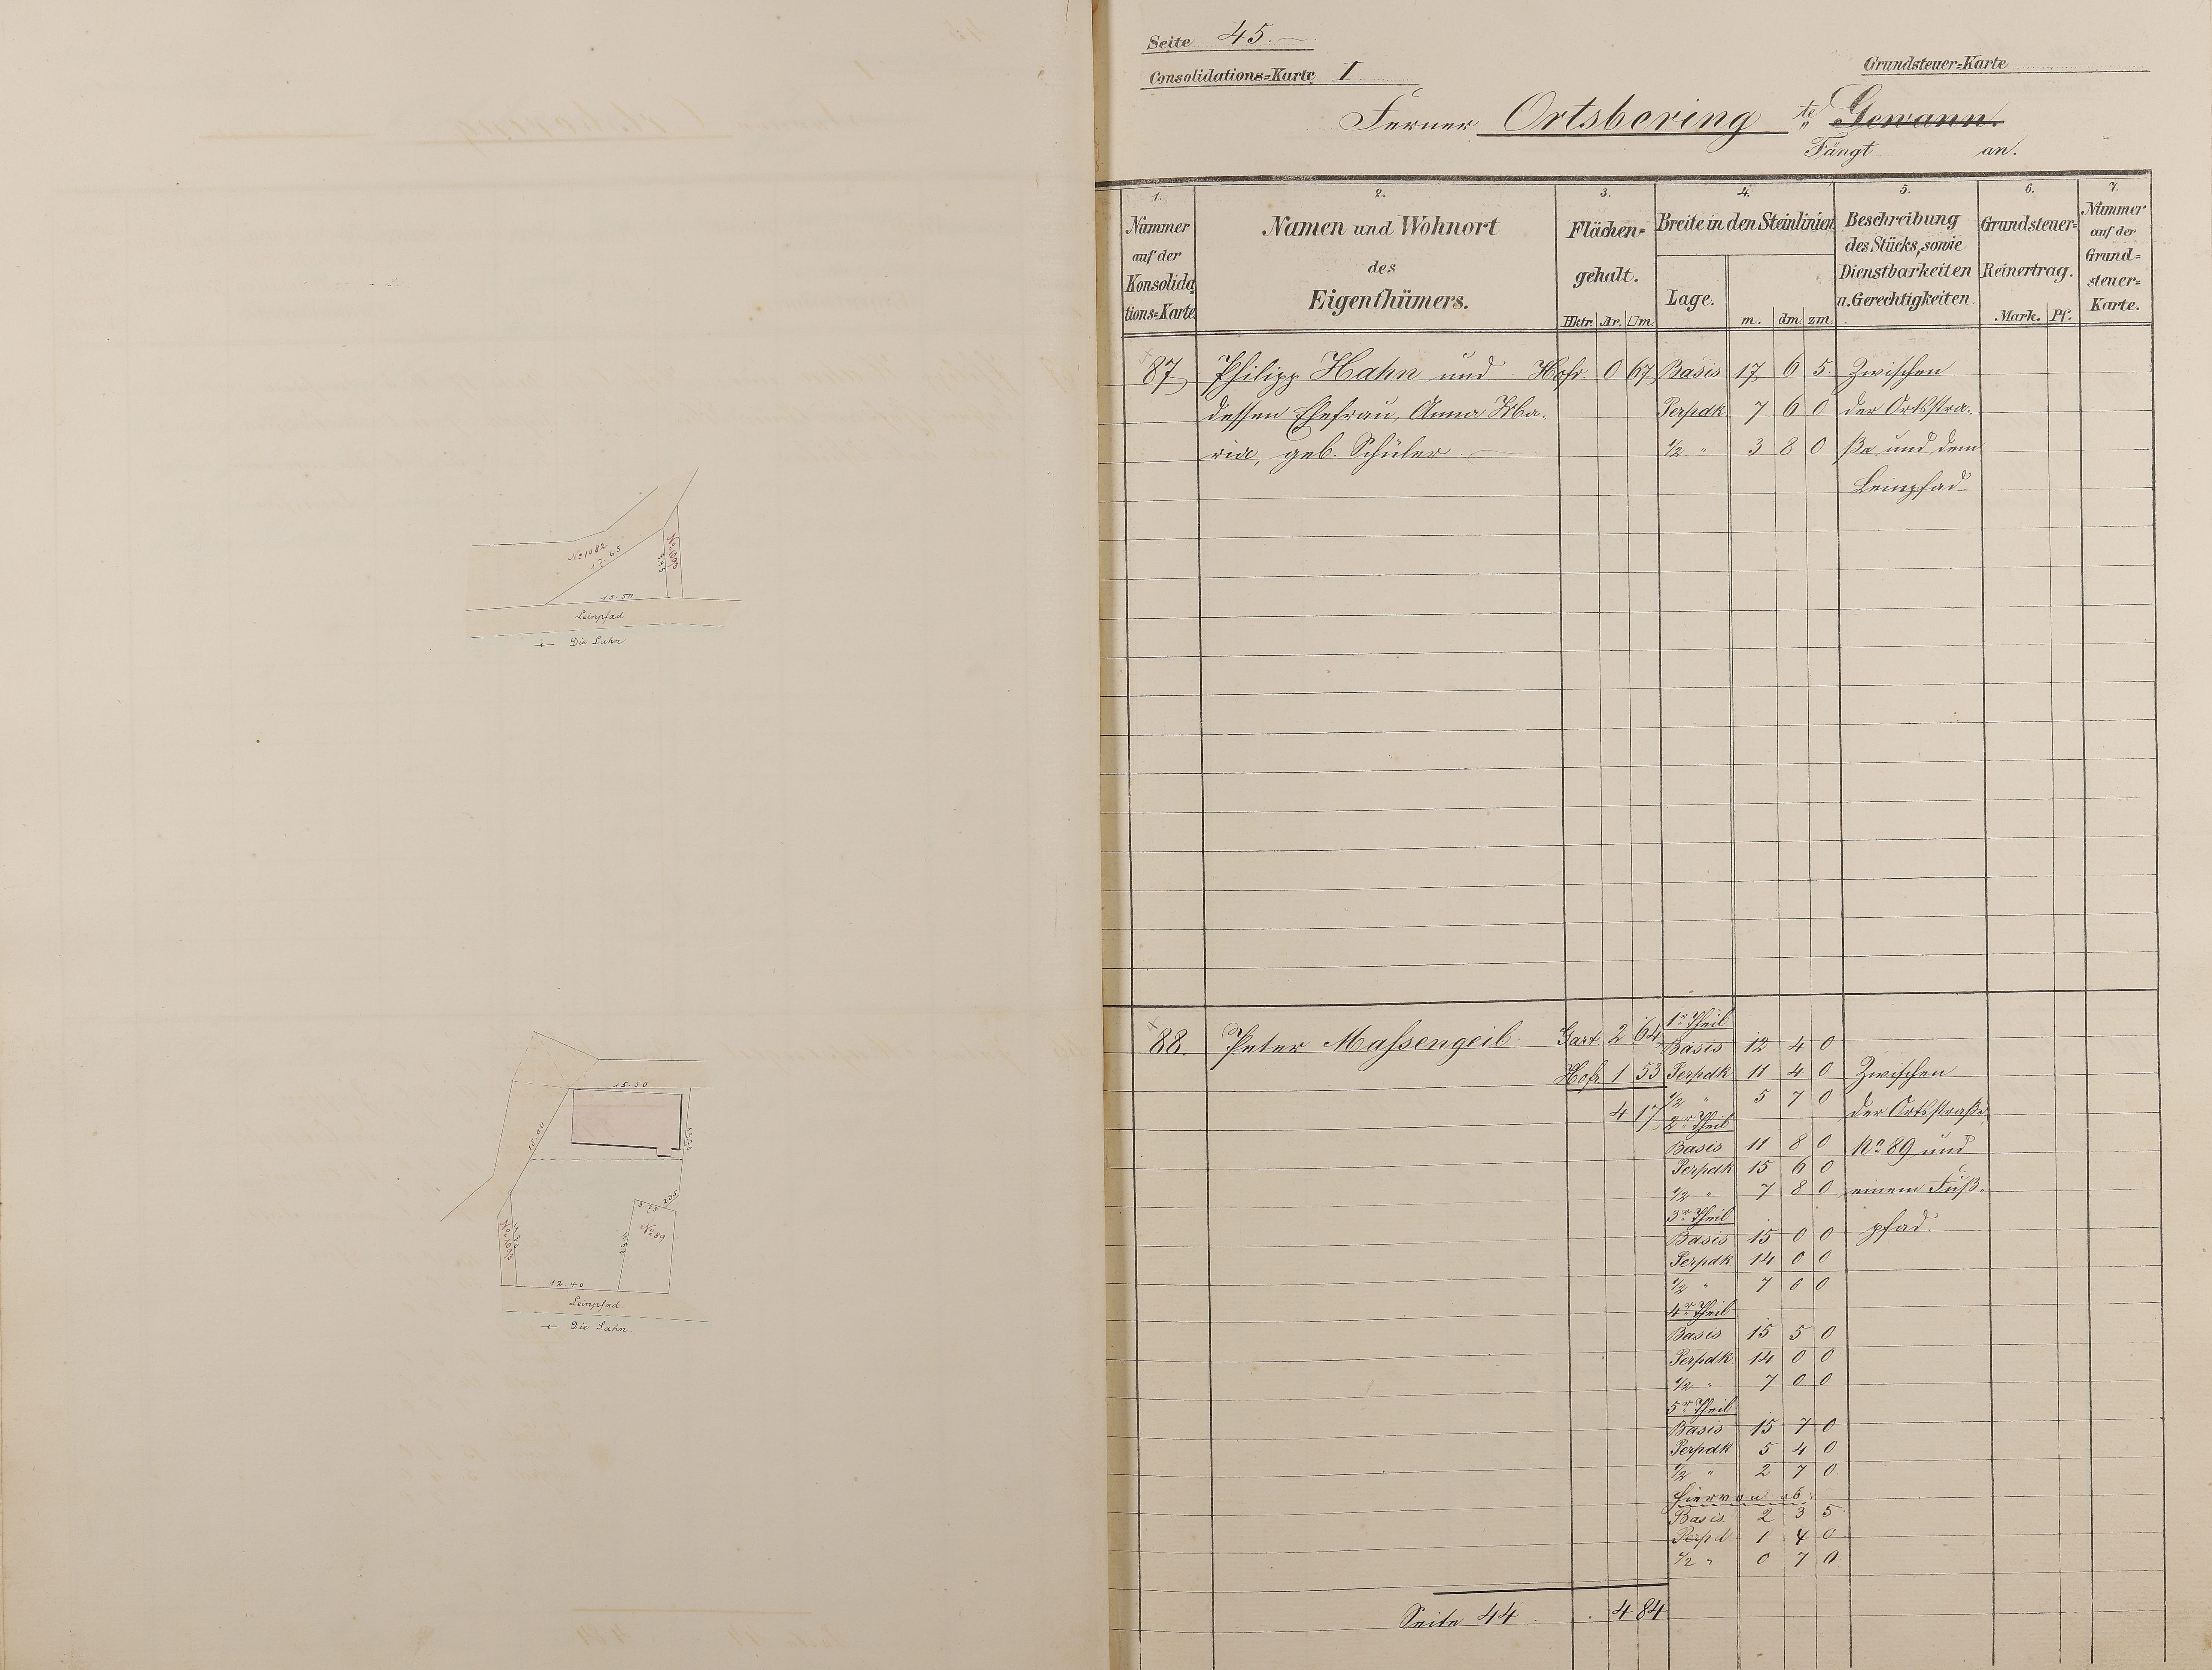 Seite 45.
Consolidations=Karte I
Grundsteuer=Karte
Ferner Ortsbering te Gewann.
Fängt an.
1.
Nummer
auf der
Konsolida
tions=Karte
2.
Namen und Wohnort
des
Eigenthümers.
3.
Flächen=
gehalt.
Hktr. Ar. □m.
4.
Breite in den Steinlinien
Lage.
m. dm. zm.
5.
Beschreibung
des Stücks, sowie
Dienstbarkeiten
u. Gerechtigkeiten.
6.
Grundsteuer=
Reinertrag.
Mark. Pf.
7.
Nummer
auf der
Grund=
steuer=
Karte.
87 Philipp Hahn und Hofr. 0 67 Basis 17 6 5 Zwischen
dessen Ehefrau, Anna Ma- Perpdk 7 6 0 der Ortsstra-
ria, geb. Schüler. 1/2 " 3 8 0 ße und dem
Leinpfad
No 1082
17.65
15.50
Leinpfad
Die Lahn
1r Theil
88. Peter Massengeil Gart. 2 64 Basis 12 4 0
Hofr 1 53 Perpdk 11 4 0 Zwischen
4 17 1/2 " 5 7 0 der Ortsstraße,
2r Theil
Basis 11 8 0 No 89 und
Perpdk 15 6 0
1/2 " 7 8 0 einem Fuß-
3r Theil
Basis 15 0 0 pfad.
Perpdk 14 0 0
1/2 " 7 0 0
4r Theil
Basis 15 5 0
Perpdk. 14 0 0
1/2 " 7 0 0
5r Theil
Basis 15 7 0
Perpdk 5 4 0
1/2 " 2 7 0
hiervon ab:
Basis 2 3 5
Perpd 1 4 0
1/2 " 0 7 0
Seite 44 . 4 84
15.50
15.00
No 89
12.40
Leinpfad.
Die Lahn.